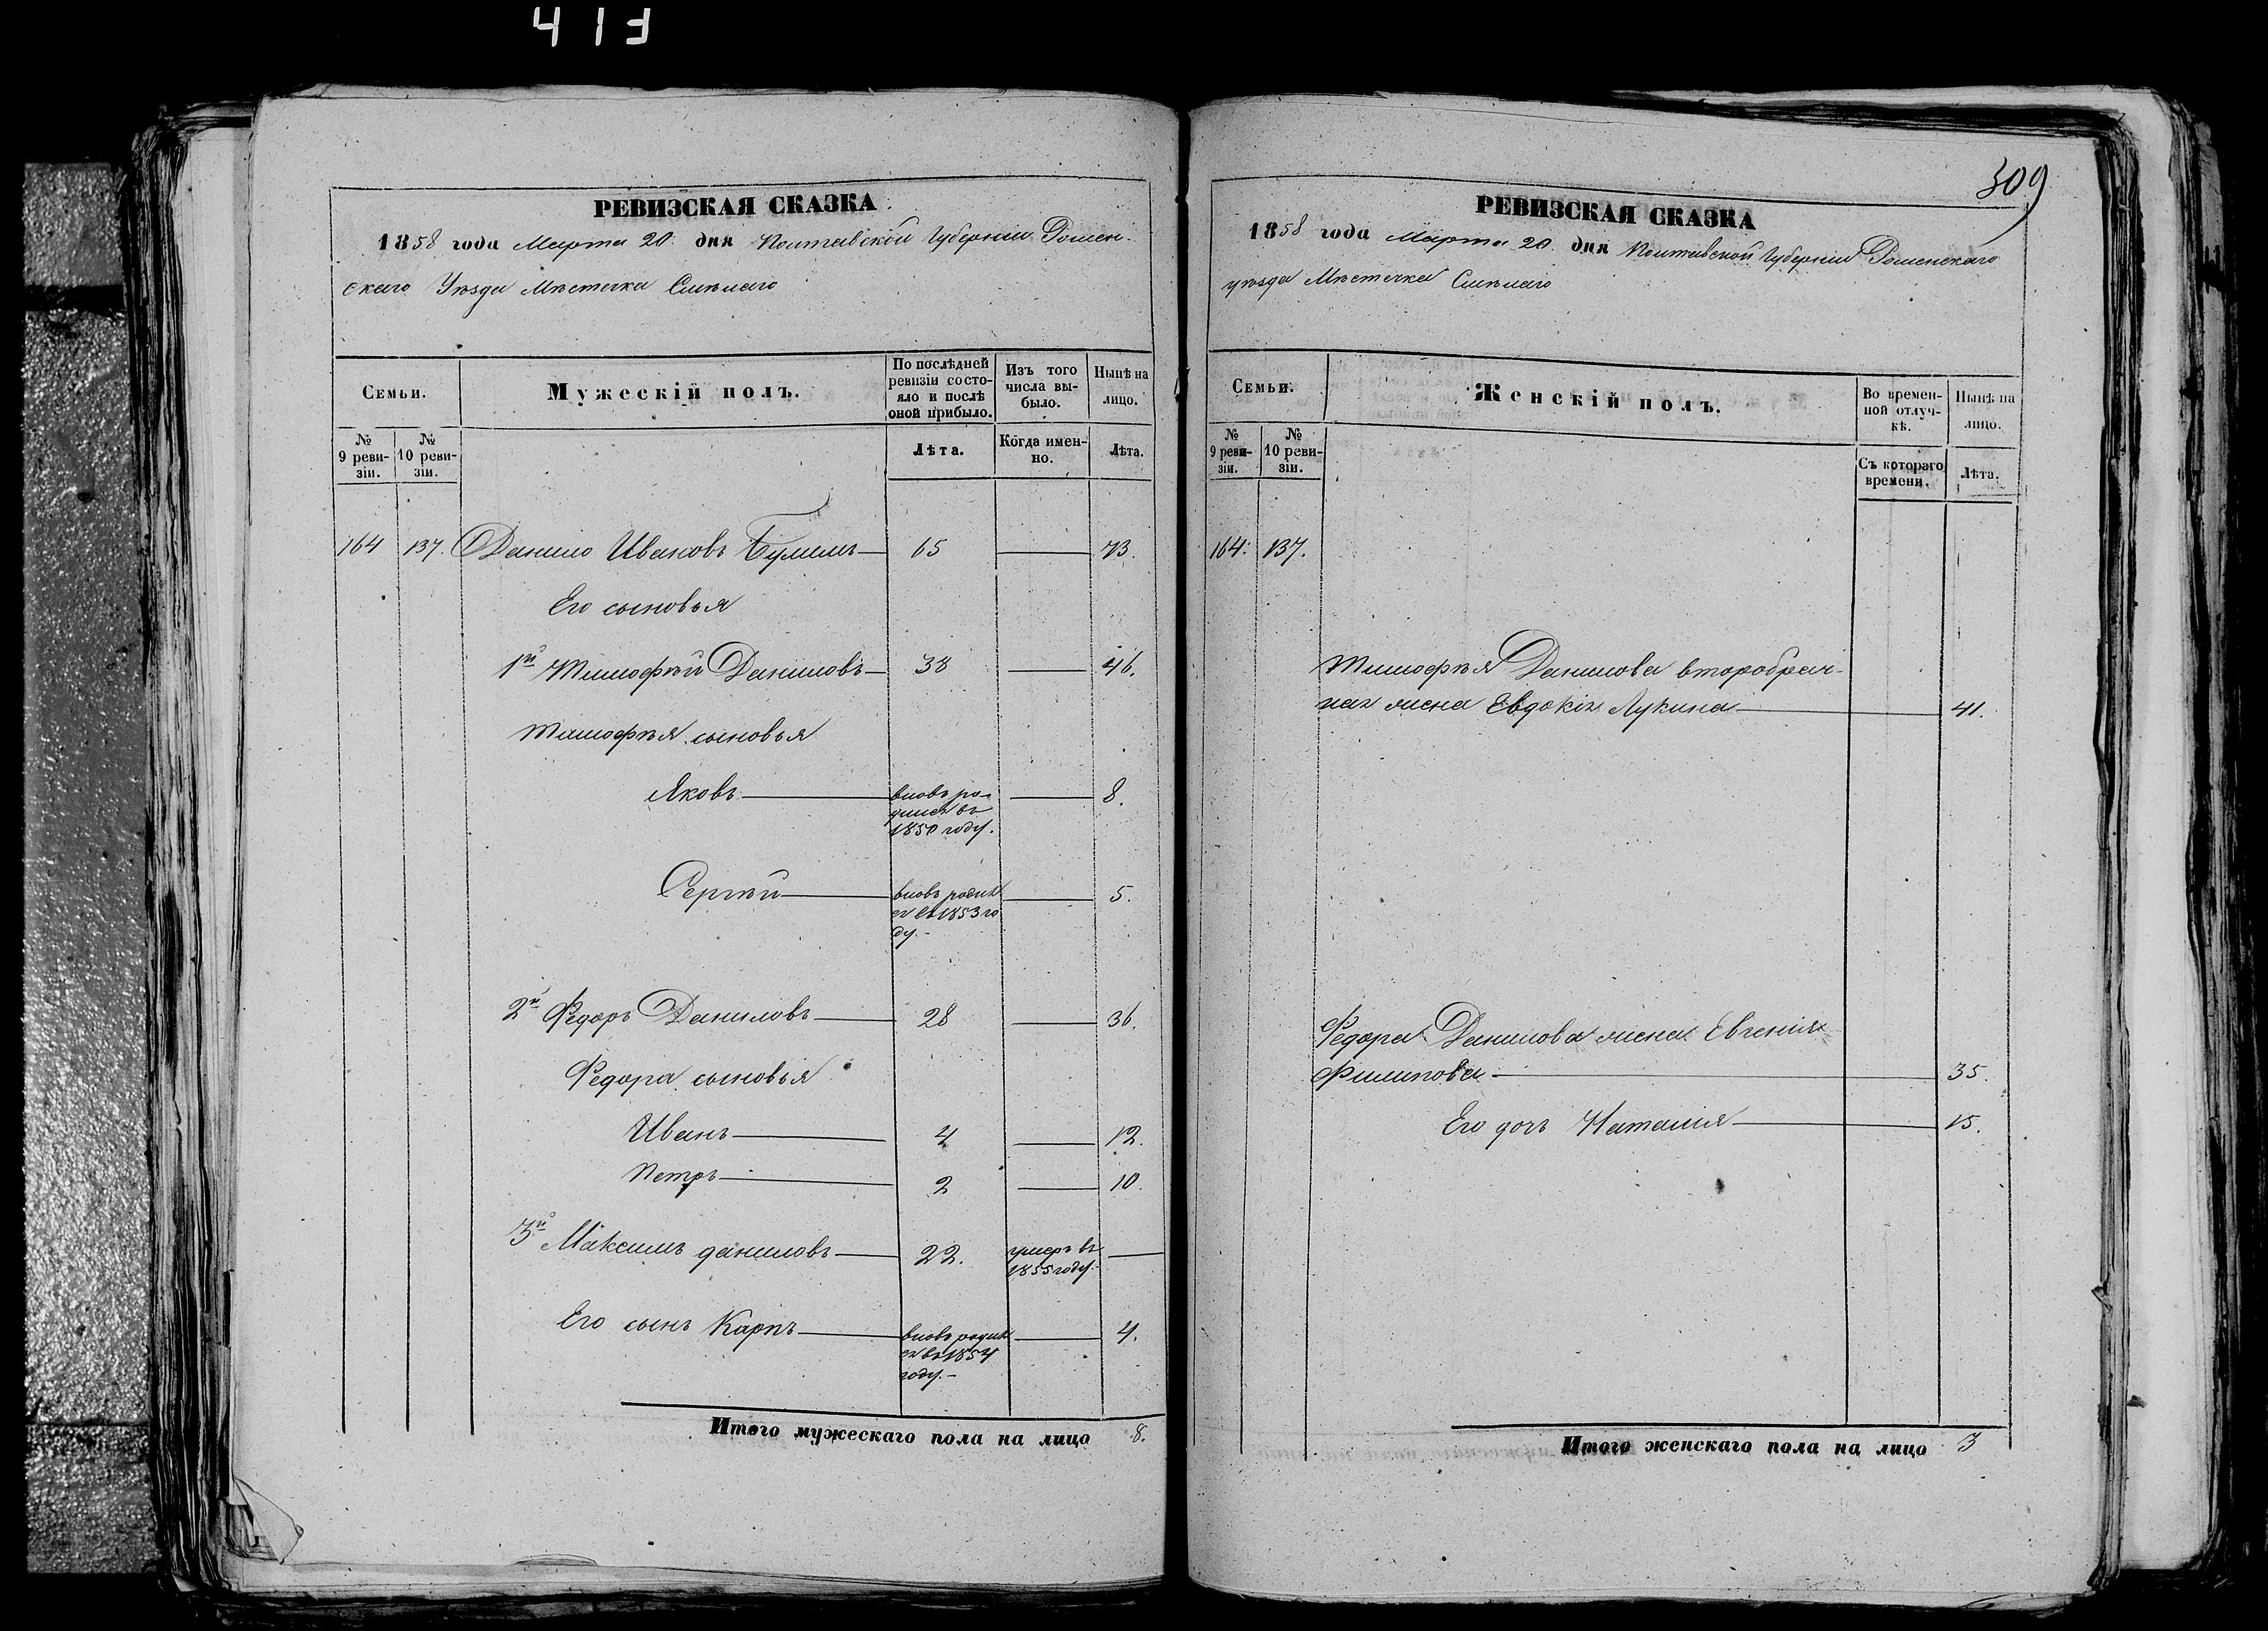 413
РЕВИЗСКАЯ СКАЗКА
1858 года Марта 20 дня Полтавской Губерніи Ромен-
скаго Уѣзда Мѣстечка Смѣлаго
Семьи. Мужескій полъ. По послѣдней ревизіи состояло и послѣ оной прибыло. Изъ того числа выбыло. Нынѣ на лицо.
№ 9 ревизіи. № 10 ревизіи. Лѣта. Когда именно. Лѣта.
164 137. Данило Ивановъ 65 73.
Его сыновья
1й Тимофѣй Даниловъ 38 46.
Тимофѣя сыновья
Яковъ вновь ро- 8.
дился въ
1850 году.
Сергѣй вновь родил 5.
ся въ 1853 го
ду.-
2й Федоръ Даниловъ 28 36.
Федора сыновья
Иванъ 4 12.
Петръ 2 10.
3й Максимъ даниловъ 22. умеръ въ
1855 году.
Его сынъ Карпъ вновь родил 4.
ся въ 1854
году.-
Итого мужескаго пола на лицо 8.
309
РЕВИЗСКАЯ СКАЗКА
1858 года Марта 20 дня Полтавской Губерніи Роменскаго
уѣзда Мѣстечка Смѣлаго
Семьи. Женскій полъ. Во временной отлучкѣ. Нынѣ на лицо.
№ 9 ревизіи. № 10 ревизіи. Съ котораго времени. Лѣта.
164. 137.
Тимофѣя Данилова второбрач-
ная жена Евдокія Лукина 41.
Федора Данилова жена Евгенія
Филипова 35.
Его дочь Наталія 15.
Итого женскаго пола на лицо 3